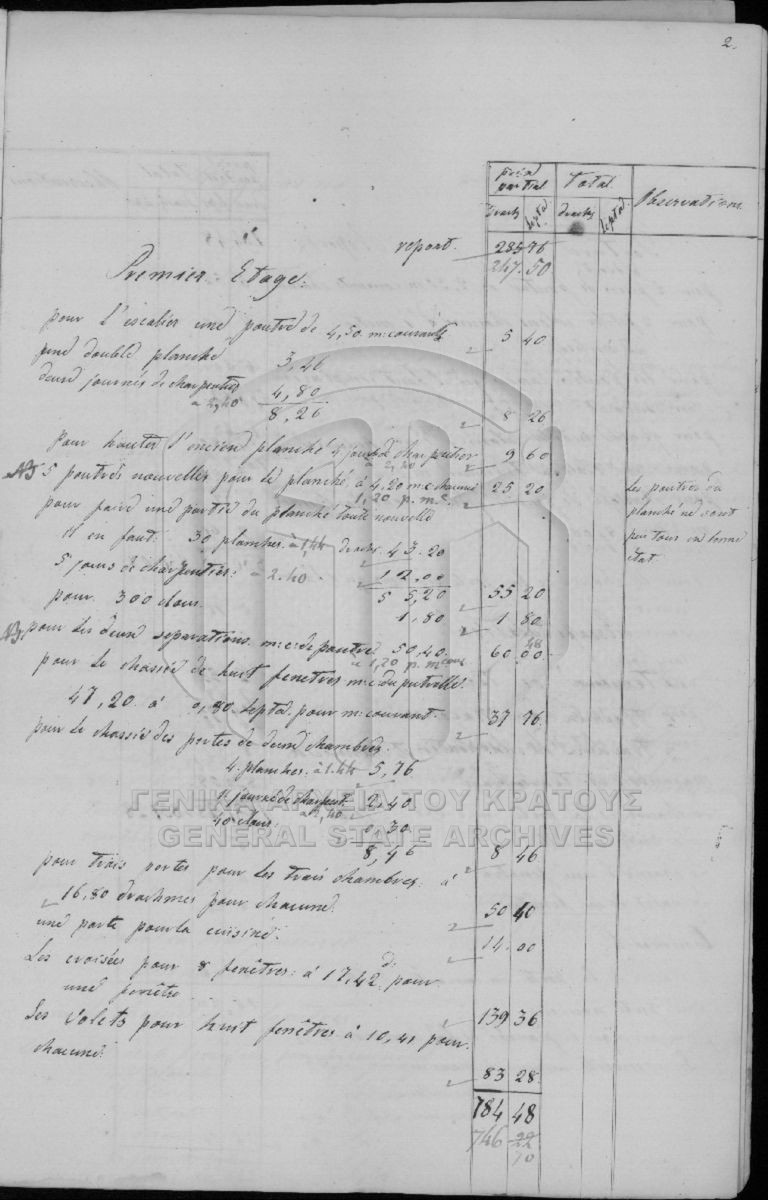 2.
prix partial | Total | Observations
Drachs | lepta | drachs | lepta
report. 285 76
247. 50
Premier Etage.
pour l'escalier une poutre de 4,50 m: courants 5 40
une double planche 3,46
deux journées de charpentier 4,80
à 2,40 8,26 8 26
Pour hauter l'ancien planché 4 jours de charpentier 9 60
à 2,40
NB 5 poutres nouvelles pour le planché à 4,20 m:c chacune 25 20
1,20 p. m.c.
Les poutres du
planché ne sont
pas tous en bonne
état.
pour faire une partie du planché toute nouvelle
il en faut 30 planches à 1,44 drachs. 43.20
5 jours de charpentier à 2.40. 12.00
55,20 55 20
pour 300 clous 1,80 1 80
NB. pour les deux separations m:c: de poutre 50,40. 60 00
48
à 1,20 p. m cour
pour le chassie de huit fenetres m:c: du putrelle
47,20. à 0,80 lepta. pour m: courant. 37 76
pour le chassie des portes de deux chambres.
4. planches. à 1.44 5,76
1 journé de charpent. 2,40
à 2,40
40 clous. 0,30
8,46 8 46
pour trois portes pour les trois chambres: à
16,80 drachmes pour chacune. 50 40
une porte pour la cuisine. 14.00
Les croisées pour 8 fenêtres: à 17,42 d. pour
une fenêtre 139 36
Les volets pour huit fenêtres à 10,41 pour
chacune. 83 28
784 48
746 22
70
ΓΕΝΙΚΑ ΑΡΧΕΙΑ ΤΟΥ ΚΡΑΤΟΥΣ
GENERAL STATE ARCHIVES